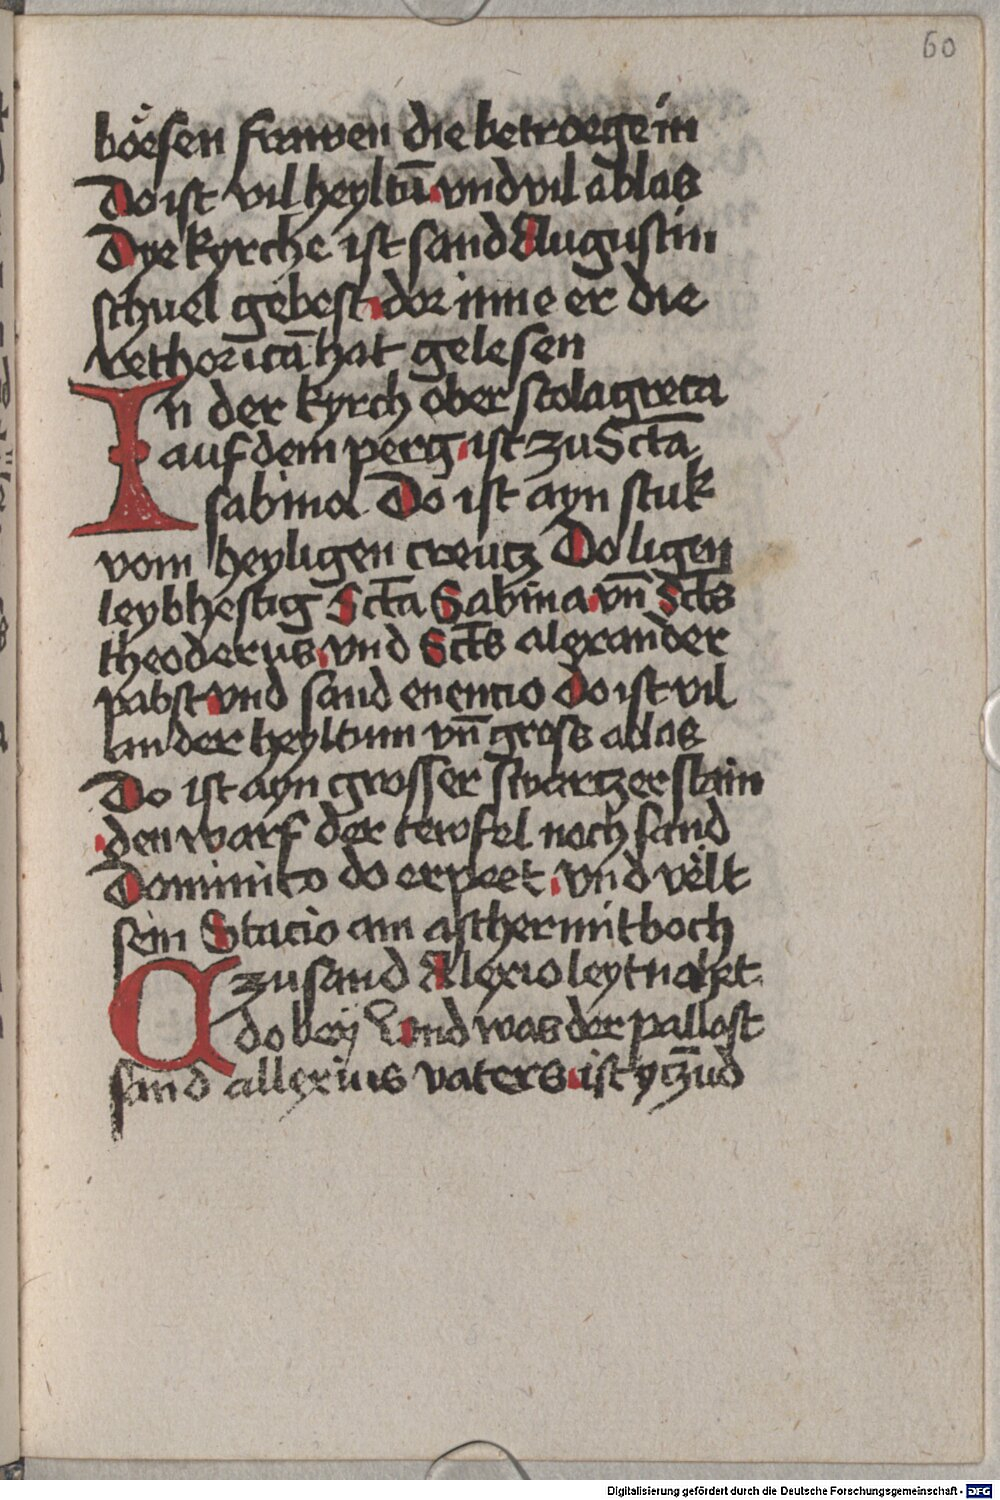 60
böesen frawen die betroegein
Do ist vil heyltū vnd vil ablas
Dye kyrche ist sand Augustin
schuel gebest dor inne er die
rethoricā hat gelesen
In der kyrch ober scola greca
auf dem perg ist zu Scta
sabina Do ist ayn stuk
vom heyligen creutz Do ligen
leybhestig Scta Sabina vn̄ Scts
theoderus vnd Scts alexander
pabst vnd sand enencio Do ist vil
ander heyltum vn̄ gross ablas
Do ist ayn grosser swartzer stain
den warf der tewfel noch sand
Dominico do er peet vnd velt
sein Statio am aschermitboch
A zu sand Alexio leyt nahet
do bey Vnd was der pallast
sand allexius vaters ist yczūd
Digitalisierung gefördert durch die Deutsche Forschungsgemeinschaft - DFG